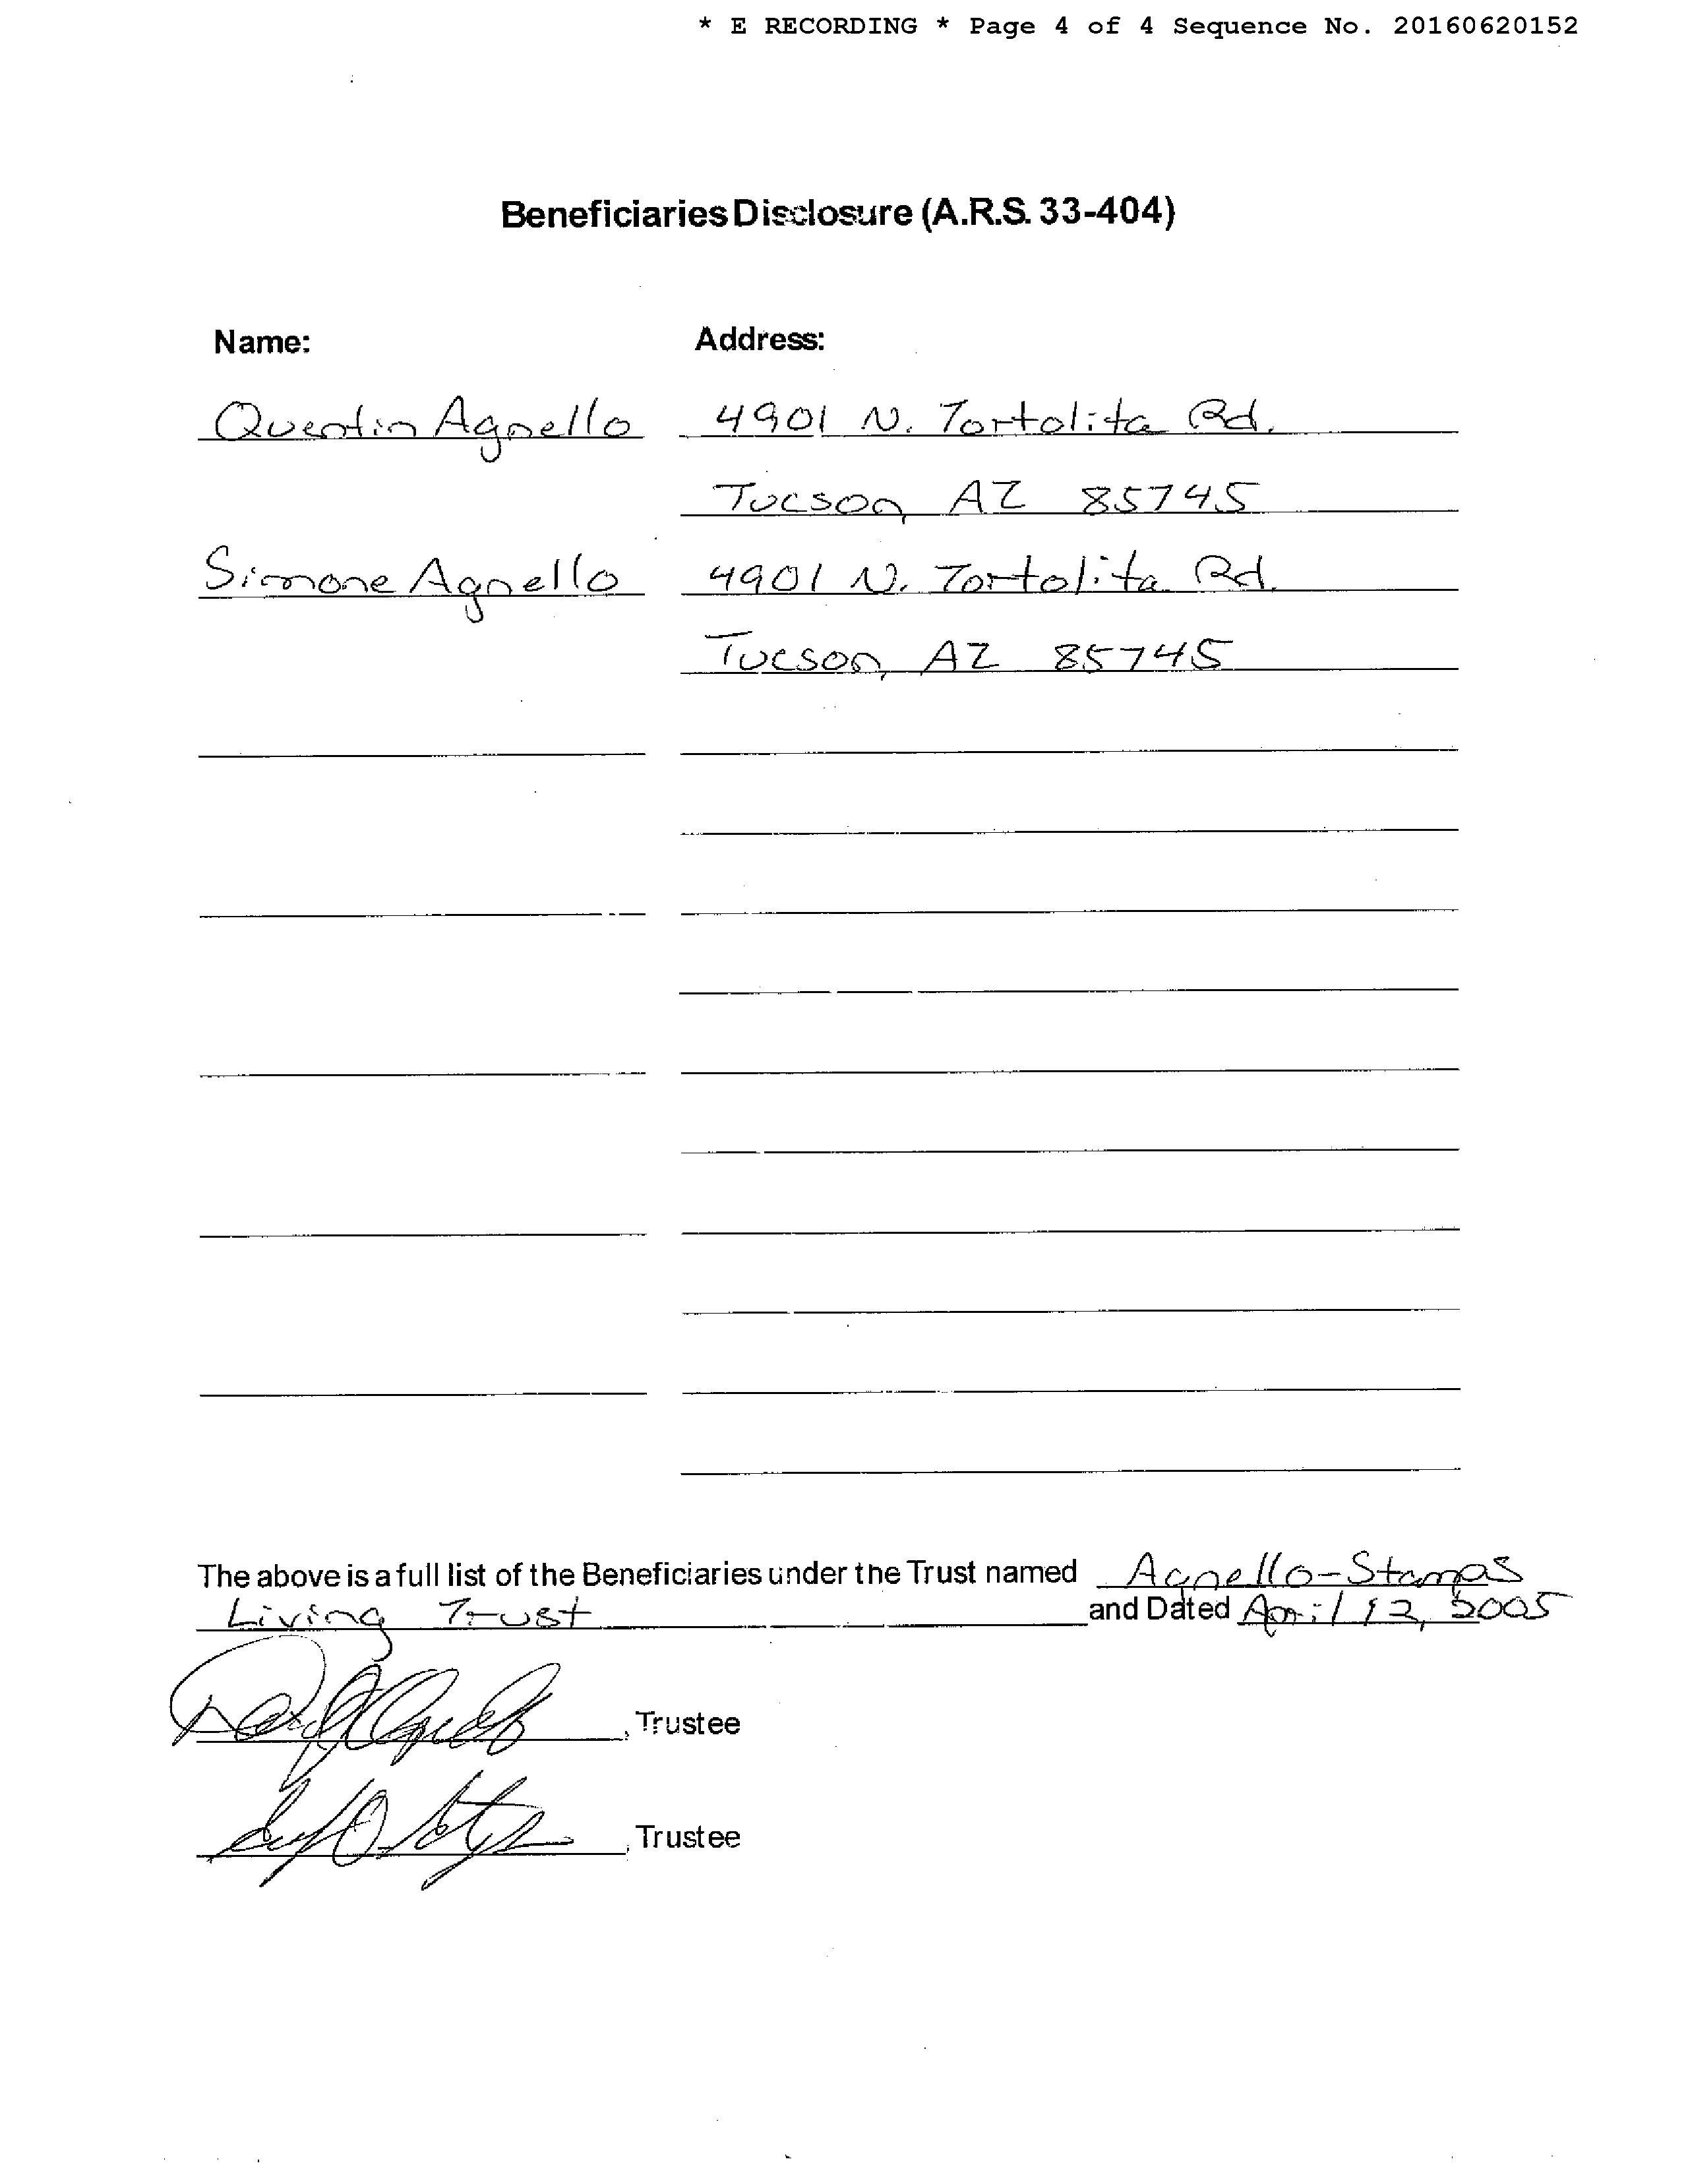 * E RECORDING * Page 4 of 4 Sequence No. 20160620152
Beneficiaries Disclosure (A.R.S. 33-404)
Name: Address:
Quentin Agnello 4901 N. Tortolita Rd.
Tucson, AZ 85745
Simone Agnello 4901 N. Tortolita Rd.
Tucson, AZ 85745
The above is a full list of the Beneficiaries under the Trust named Agnello-Stamps
Living Trust and Dated April 12, 2005
, Trustee
, Trustee